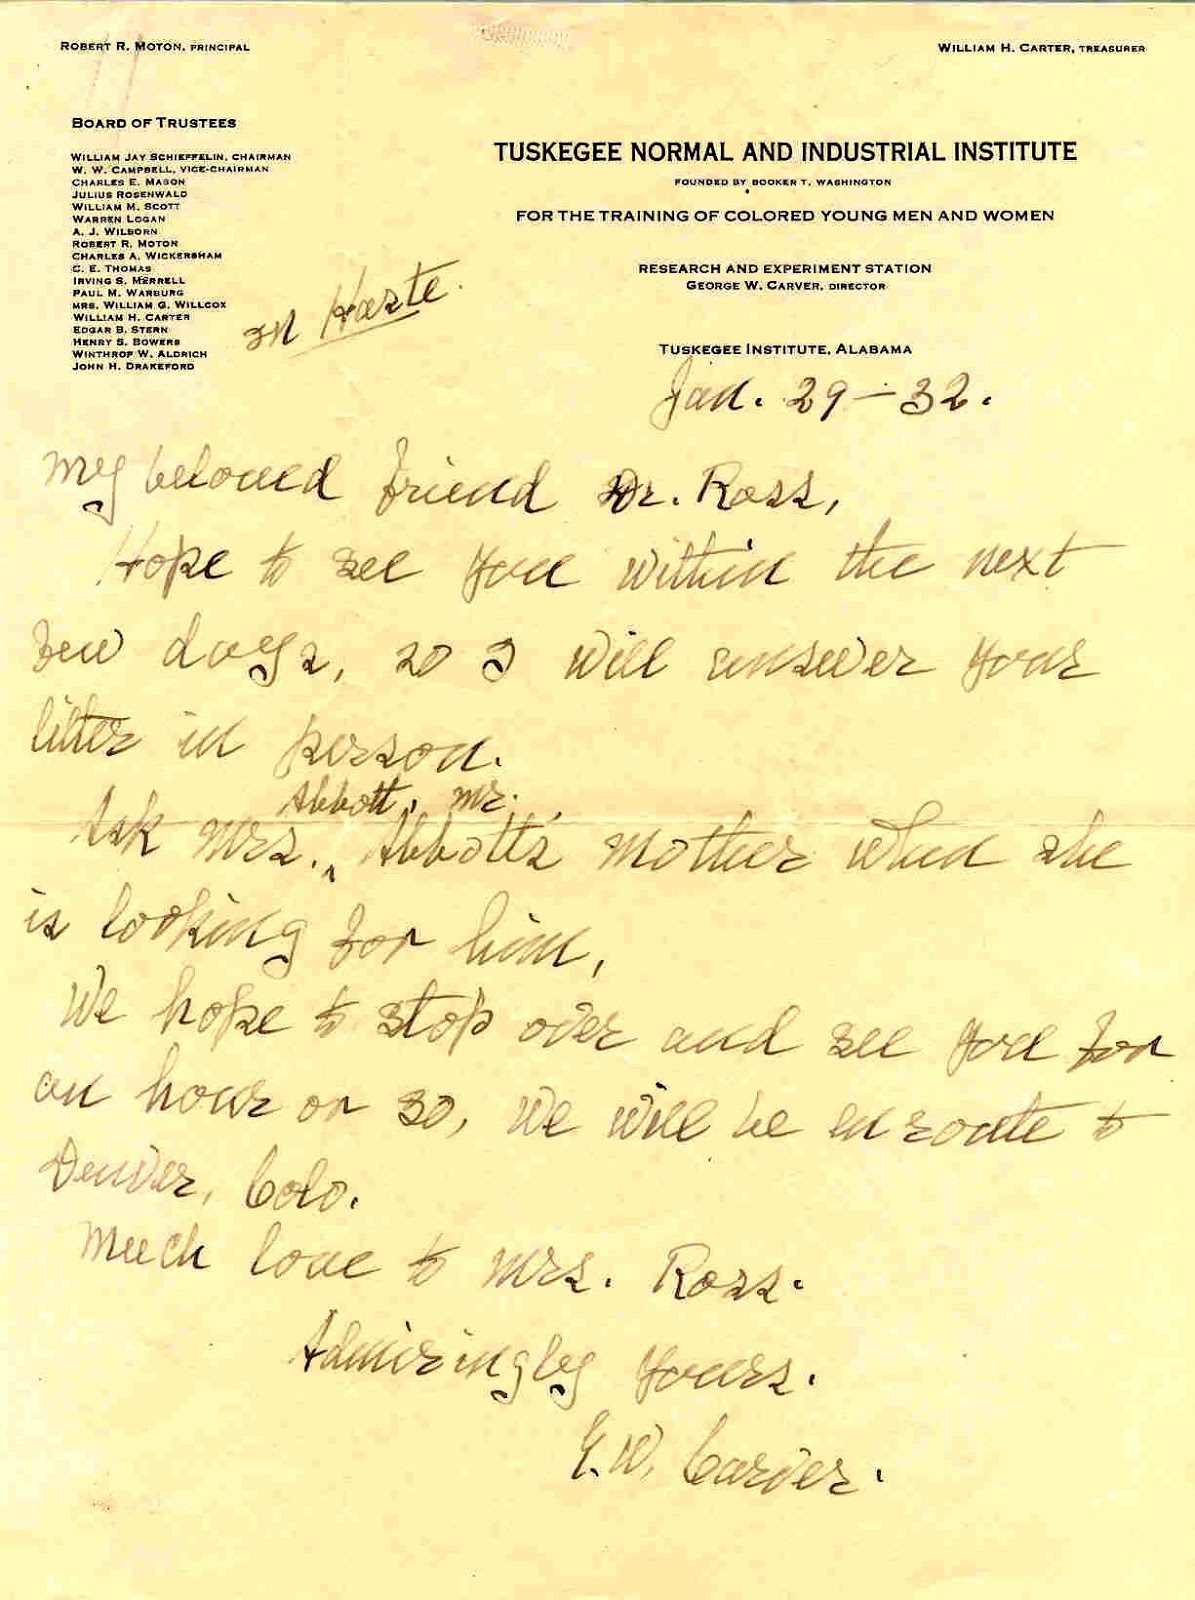 ROBERT R. MOTON, PRINCIPAL
WILLIAM H. CARTER, TREASURER
BOARD OF TRUSTEES
WILLIAM JAY SCHIEFFELIN, CHAIRMAN
W. W. CAMPBELL, VICE-CHAIRMAN
CHARLES E. MASON
JULIUS ROSENWALD
WILLIAM M. SCOTT
WARREN LOGAN
A. J. WILBORN
ROBERT R. MOTON
CHARLES A. WICKERSHAM
C. E. THOMAS
IRVING S. MERRELL
PAUL M. WARBURG
MRS. WILLIAM G. WILLCOX
WILLIAM H. CARTER
EDGAR B. STERN
HENRY S. BOWERS
WINTHROP W. ALDRICH
JOHN H. DRAKEFORD
TUSKEGEE NORMAL AND INDUSTRIAL INSTITUTE
FOUNDED BY BOOKER T. WASHINGTON
FOR THE TRAINING OF COLORED YOUNG MEN AND WOMEN
RESEARCH AND EXPERIMENT STATION
GEORGE W. CARVER, DIRECTOR
TUSKEGEE INSTITUTE, ALABAMA
In Haste.
Jan. 29-32.
My beloved friend Dr. Ross,
Hope to see you within the next
few days, so I will answer your
letter in person.
Abbott, Mr.
Ask Mrs. ‸ Abbott's mother when she
is looking for him,
We hope to stop over and see you for
an hour or so, we will be enroute to
Denver, Colo.
Much love to Mrs. Ross.
Admiringly yours.
G. W. Carver.